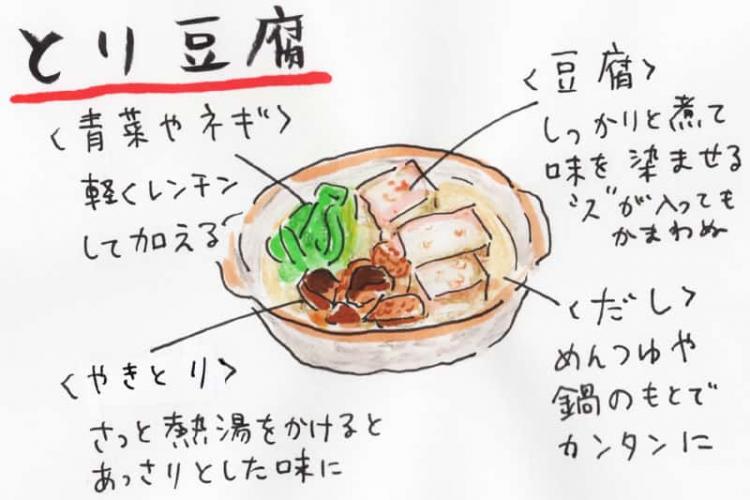 とり豆腐
〈青菜やネギ〉
軽くレンチン
して加える
〈豆腐〉
しっかりと煮て
味を染ませる
"ス"が入っても
かまわぬ
〈やきとり〉
さっと熱湯をかけると
あっさりとした味に
〈だし〉
めんつゆや
鍋のもとで
カンタンに